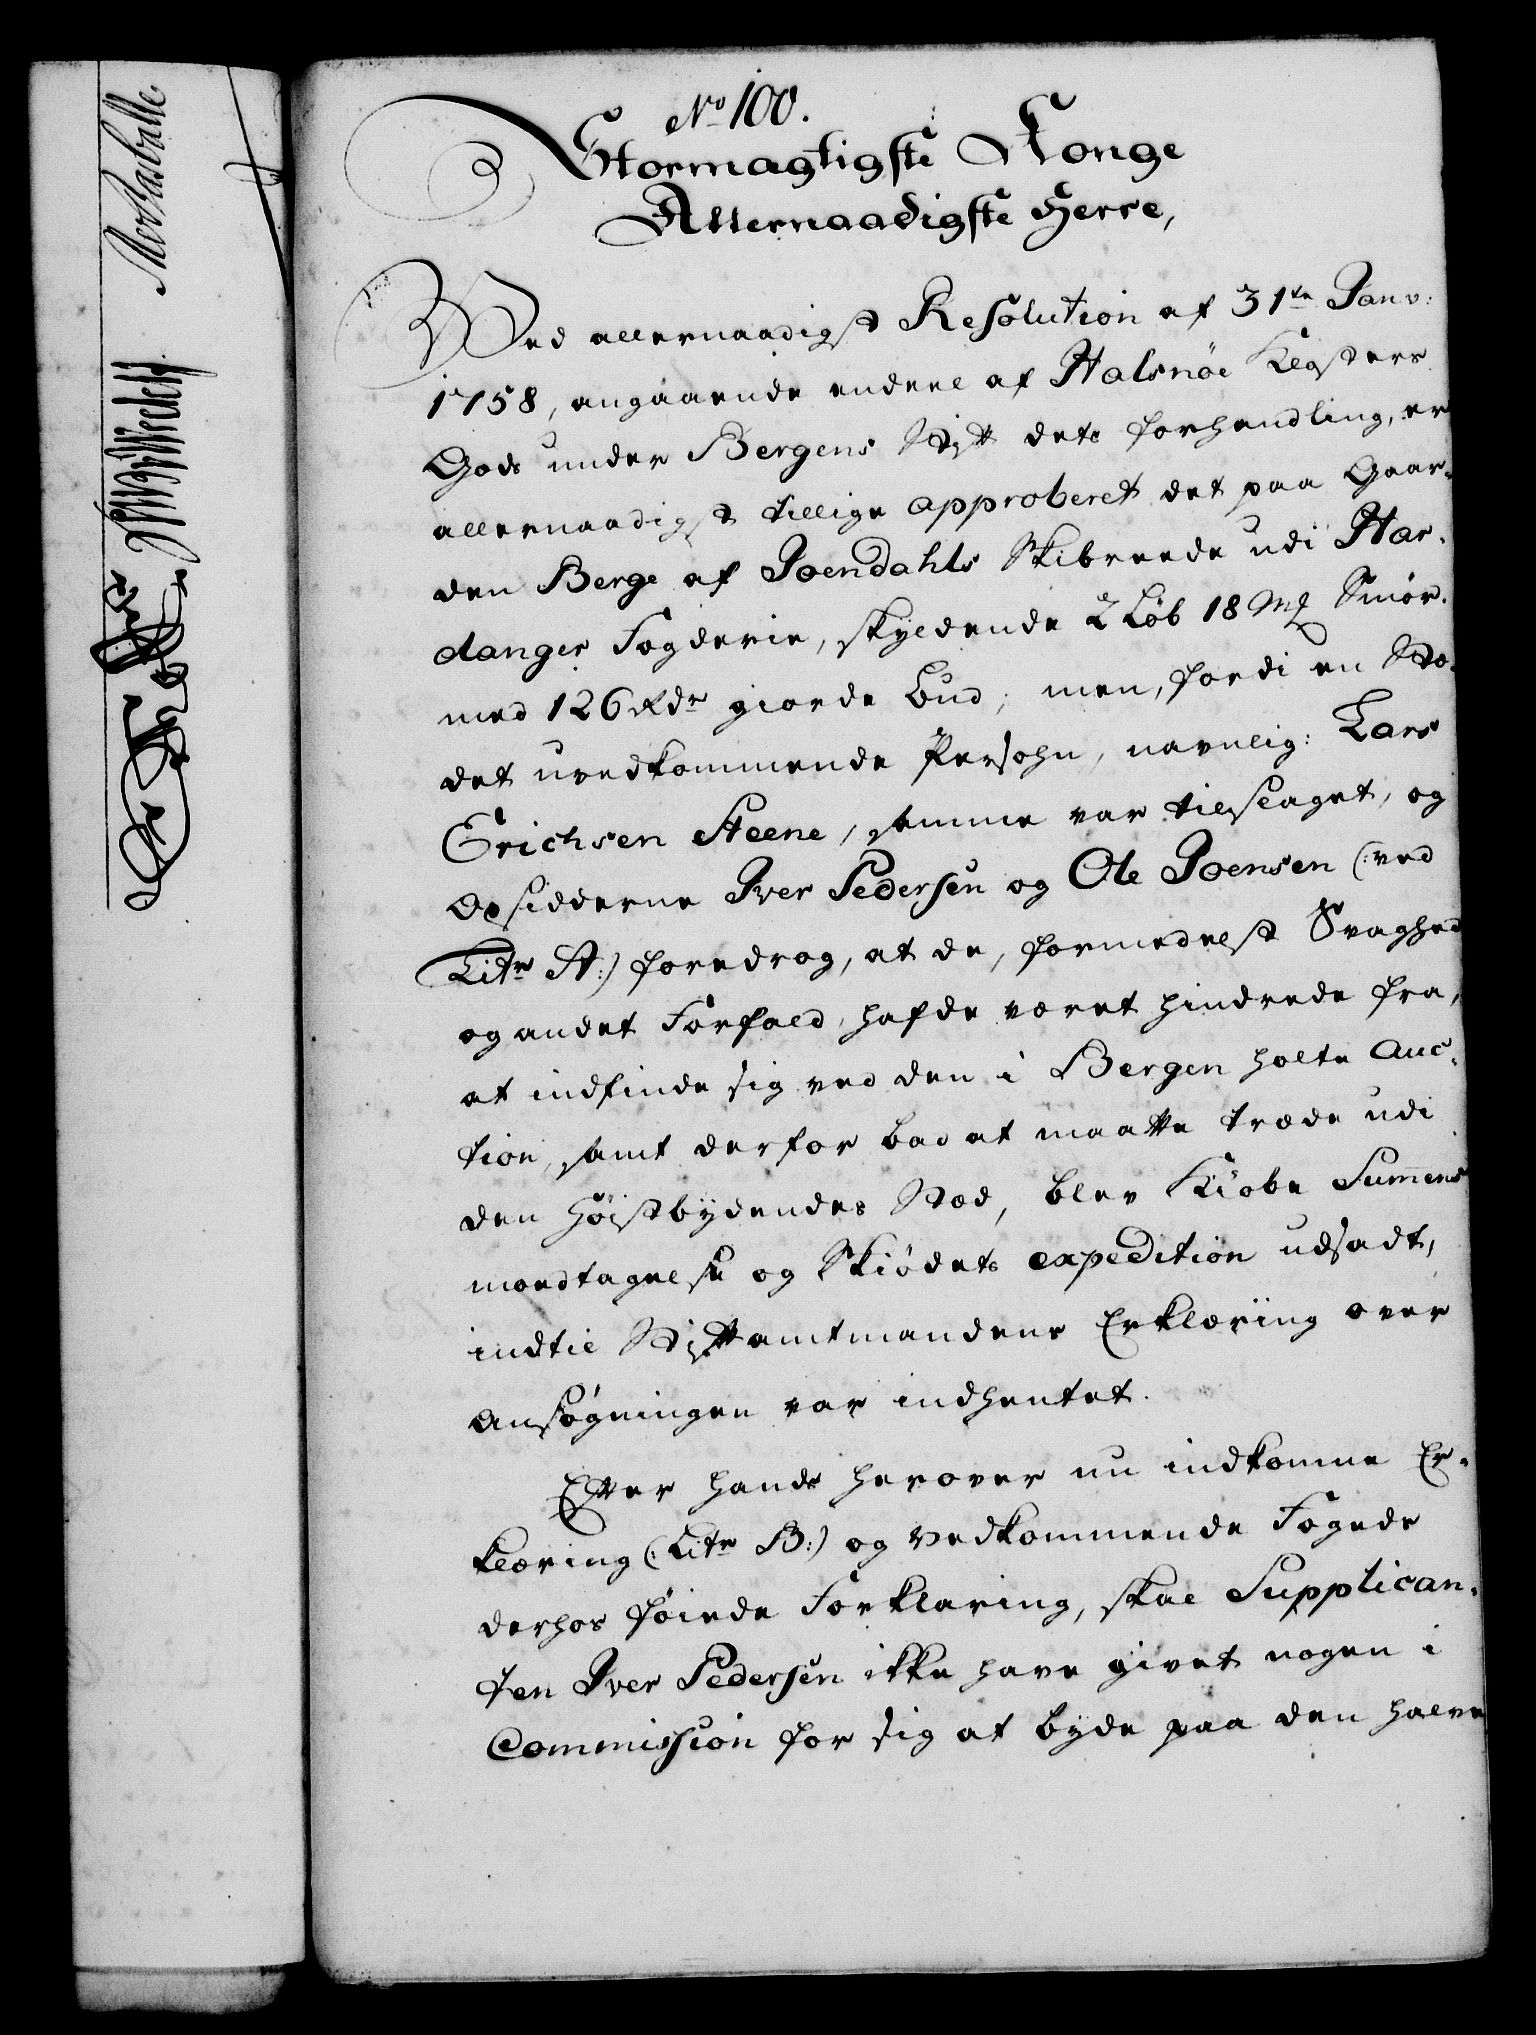 No 100.
Stormagtigste Konge
Allernaadigste Herre,
Ved allernaadigst Resolution af 31te Janv:
1758, angaaende endeel af Halsnöe Klosters
Gods under Bergens Stift dets forhandling, er
allernaadigst tillige approberet det paa Gaar-
den Berge af Joendahls Skibreede udi Har-
danger Fogderie, skyldende 2 Løb 18 Mk Smör.
med 126 Rdr giorde Bud; men, fordi en Ste-
det uvedkommende Persohn, navnlig: Lars
Erichsen Steene, samme var tilslaget, og
Opsidderne Iver Pedersen og Ole Joensen (:ved
Litr A:) foredrog, at de, formedelst Svaghed
og andet Forfald, hafde været hindrede fra,
at indfinde sig ved den i Bergen holte Auc-
tion, samt derfor bad at maatte træde udi
den Høistbydendes Sted, blev Kiøbe Sum̄ens
modtagelse og Skiödets expedition udsadt,
indtil Stiftamtmandens Erklæring over
Ansøgningen var indhentet.
Efter hands herover nu indkomne Er-
klæring (:Litr B:) og vedkommende Fogeds
derhos föiede Forklaring, skal Supplican-
ten Iver Pedersen ikke have givet nogen i
Commission for sig at byde paa den halve